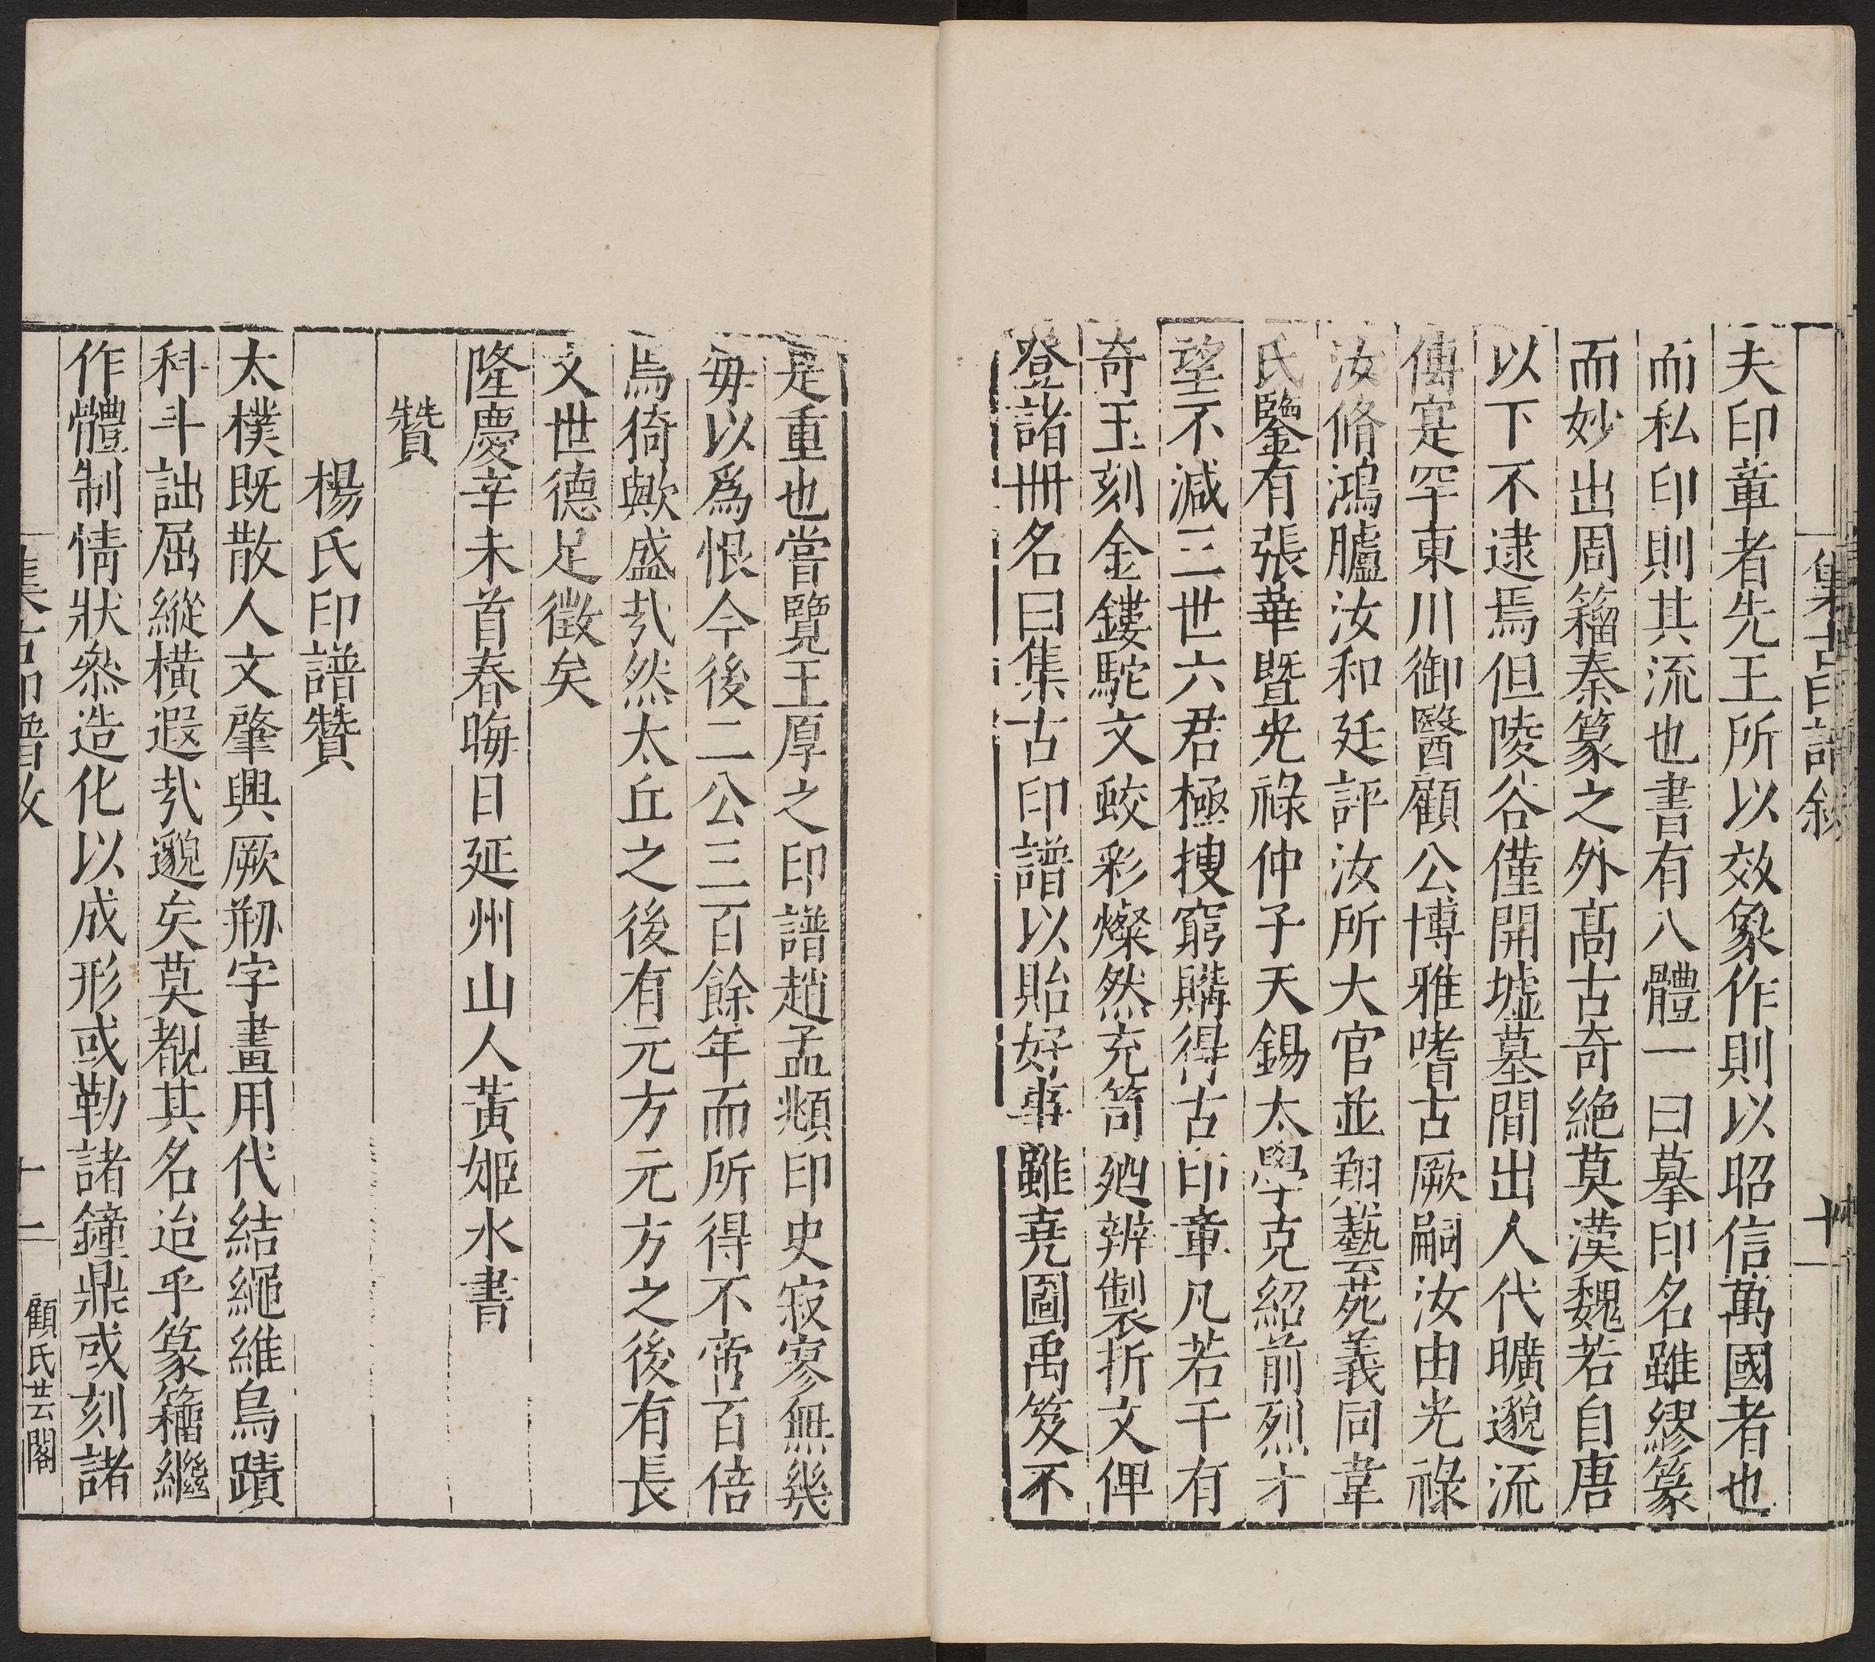 集古印譜敘
十一
夫印章者先王所以效象作則以昭信萬國者也
而私印則其流也書有八體一曰摹印名雖繆篆
而妙出周籀秦篆之外高古奇絶莫漢魏若自唐
以下不逮焉但陵谷僅開墟墓間出人代曠邈流
傳寔罕東川御醫顧公博雅嗜古厥嗣汝由光祿
汝脩鴻臚汝和廷評汝所大官並翔藝苑義同韋
氏鑒有張華暨光祿仲子天錫太學克紹前烈才
望不減三世六君極搜窮購得古印章凡若干有
奇玉刻金鏤駝文蛟彩燦然充笥廼辨製折文俾
登諸冊名曰集古印譜以貽好事雖堯圖禹笈不
是重也嘗覽王厚之印譜趙孟頫印史寂寥無幾
毋以爲恨今後二公三百餘年而所得不啻百倍
焉猗歟盛㢤然太丘之後有元方元方之後有長
文世德足徵矣
隆慶辛未首春晦日延州山人黃姬水書
贊
楊氏印譜贊
太樸既散人文肇興厥刱字畫用代結繩維鳥蹟
科斗詘屈縱橫遐㢤邈矣莫覩其名迨乎篆籀繼
作體制情狀叅造化以成形或勒諸鐘鼎或刻諸
集古印譜敘
十二
顧氏芸閣